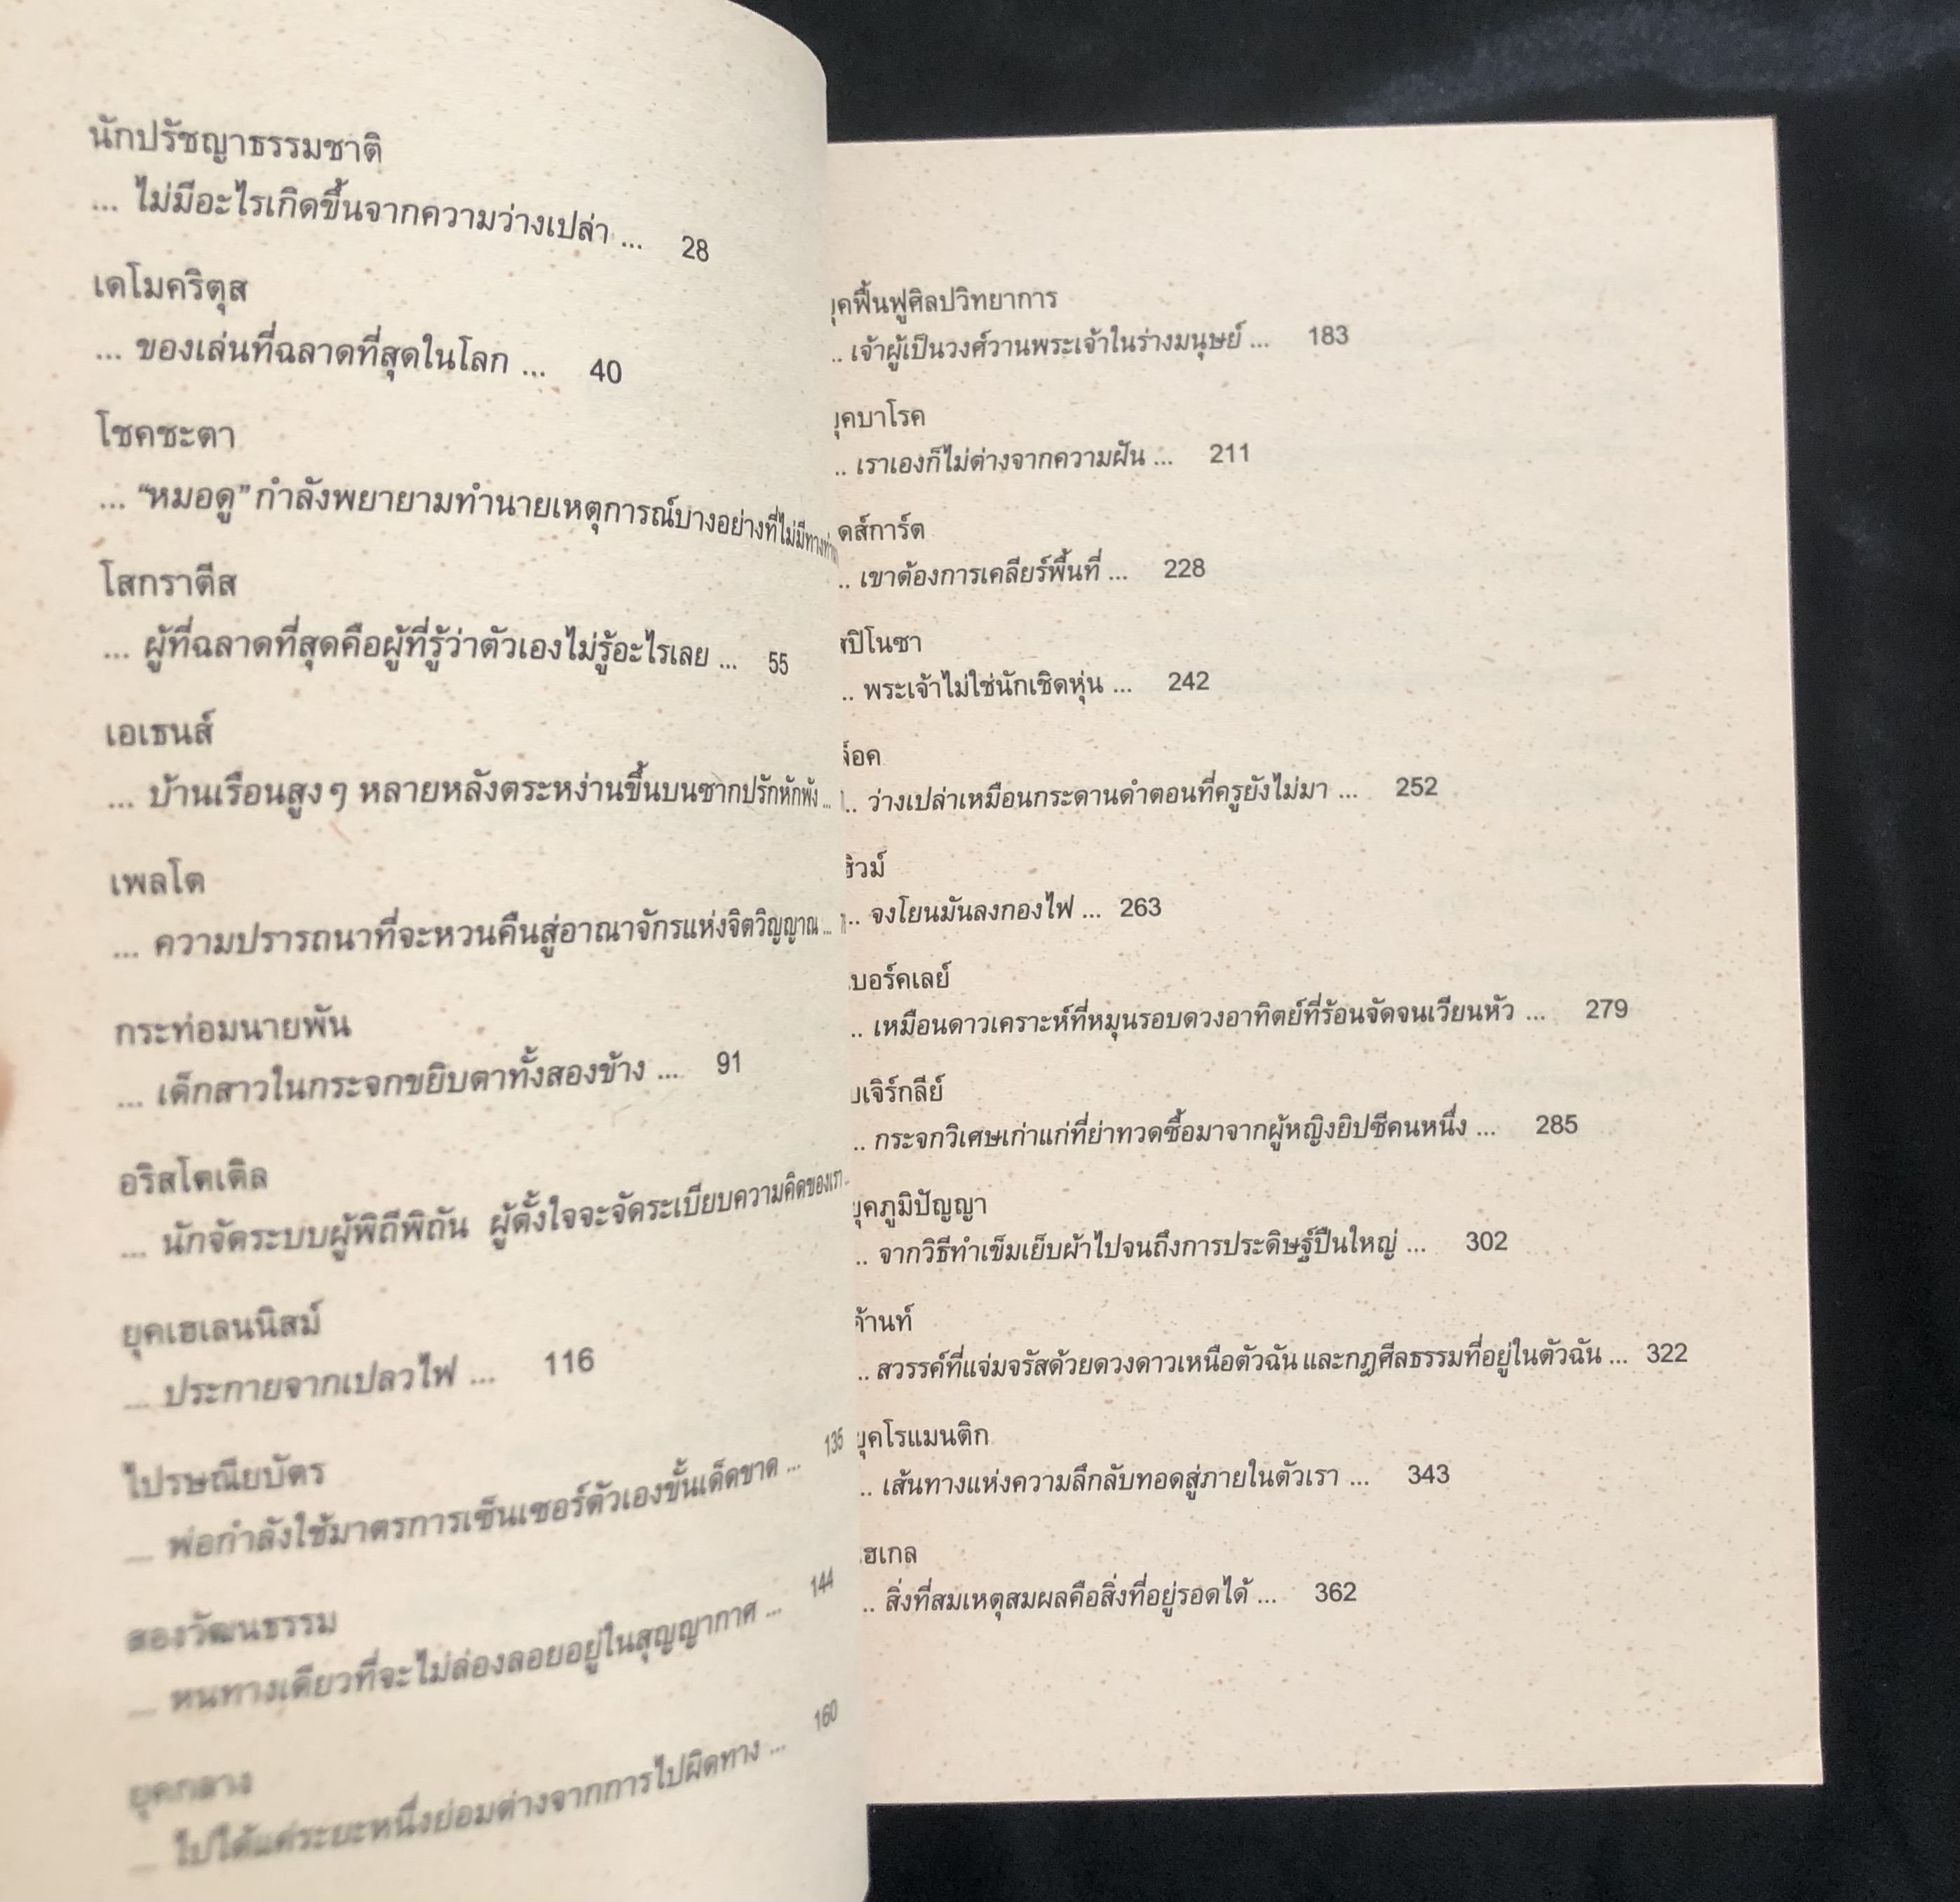 นักปรัชญาธรรมชาติ
... ไม่มีอะไรเกิดขึ้นจากความว่างเปล่า ... 28
เดโมคริตุส
... ของเล่นที่ฉลาดที่สุดในโลก ... 40
โชคชะตา
... “หมอดู” กำลังพยายามทำนายเหตุการณ์บางอย่างที่ไม่มีทาง
โสกราตีส
... ผู้ที่ฉลาดที่สุดคือผู้ที่รู้ว่าตัวเองไม่รู้อะไรเลย ... 55
เอเธนส์
... บ้านเรือนสูงๆ หลายหลังตระหง่านขึ้นบนซากปรักหักพัง ...
เพลโต
... ความปรารถนาที่จะหวนคืนสู่อาณาจักรแห่งจิตวิญญาณ ...
กระท่อมนายพัน
... เด็กสาวในกระจกขยิบตาทั้งสองข้าง ... 91
อริสโตเติล
... นักจัดระบบผู้พิถีพิถัน ผู้ตั้งใจจะจัดระเบียบความคิดของเรา ..
ยุคเฮเลนนิสม์
... ประกายจากเปลวไฟ ... 116
ไปรษณียบัตร
... พ่อกำลังใช้มาตรการเซ็นเซอร์ตัวเองขั้นเด็ดขาด ... 135
สองวัฒนธรรม
... หนทางเดียวที่จะไม่ล่องลอยอยู่ในสุญญากาศ ... 144
ยุคกลาง
... ไปได้แค่ระยะหนึ่งย่อมต่างจากการไปผิดทาง ... 160
ุคฟื้นฟูศิลปวิทยาการ
.. เจ้าผู้เป็นวงศ์วานพระเจ้าในร่างมนุษย์ ... 183
ุคบาโรค
.. เราเองก็ไม่ต่างจากความฝัน ... 211
ดส์การ์ต
.. เขาต้องการเคลียร์พื้นที่ ... 228
ปิโนซา
.. พระเจ้าไม่ใช่นักเชิดหุ่น ... 242
็อค
.. ว่างเปล่าเหมือนกระดานดำตอนที่ครูยังไม่มา ... 252
ฮิวม์
.. จงโยนมันลงกองไฟ ... 263
บอร์คเลย์
.. เหมือนดาวเคราะห์ที่หมุนรอบดวงอาทิตย์ที่ร้อนจัดจนเวียนหัว ... 279
เจิร์กลีย์
.. กระจกวิเศษเก่าแก่ที่ย่าทวดซื้อมาจากผู้หญิงยิปซีคนหนึ่ง ... 285
ยุคภูมิปัญญา
.. จากวิธีทำเข็มเย็บผ้าไปจนถึงการประดิษฐ์ปืนใหญ่ ... 302
ค้านท์
.. สวรรค์ที่แจ่มจรัสด้วยดวงดาวเหนือตัวฉัน และกฎศีลธรรมที่อยู่ในตัวฉัน ... 322
ยุคโรแมนติก
.. เส้นทางแห่งความลึกลับทอดสู่ภายในตัวเรา ... 343
ฮเกล
.. สิ่งที่สมเหตุสมผลคือสิ่งที่อยู่รอดได้ ... 362